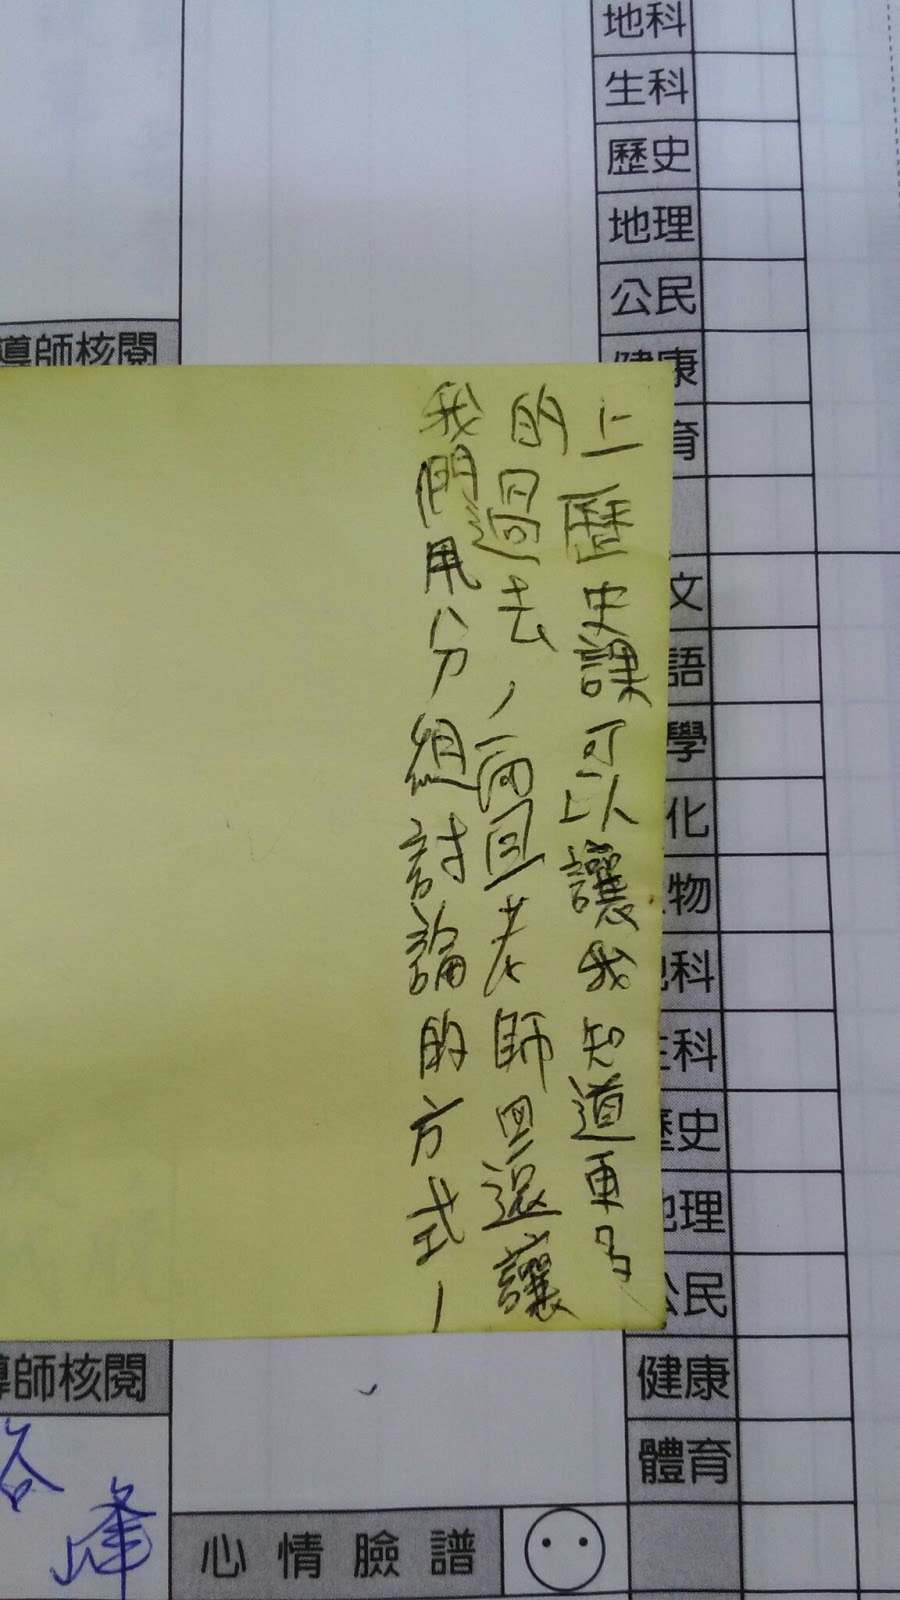 地科
生科
歷史
地理
公民
導師核閱
健康
育
上歷史課可以讓我知道更多
的過去，而且老師還讓
我們用分組討論的方式，
文
語
學
化
物
科
科
史
理
公民
導師核閱
健康
體育
心情臉譜